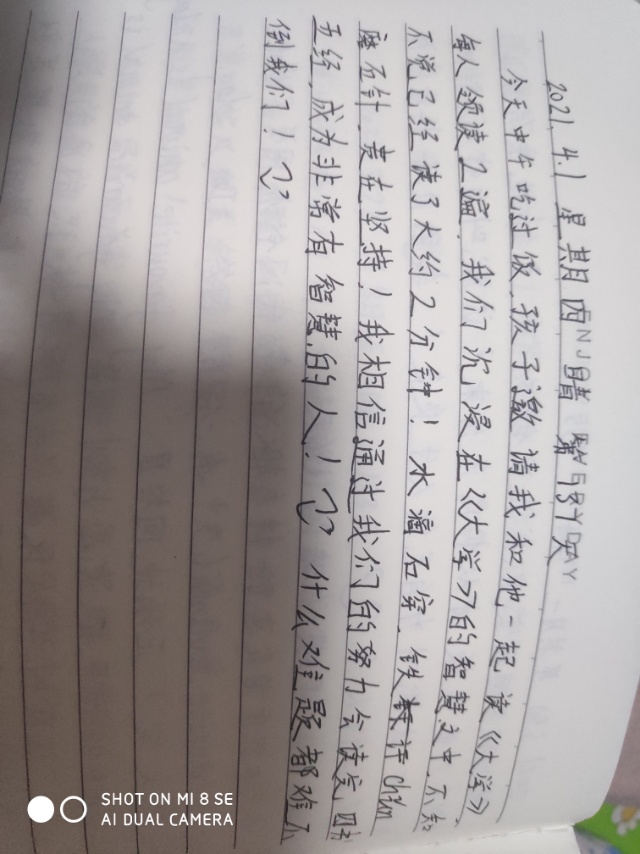 2021.4.1 星期四 NJ晴 第 天 DAY
今天中午吃过饭,孩子邀请我和他一起读《大学》
每人领读2遍.我们沉浸在《大学》的智慧之中,不知
不觉已经读了大约2分钟!水滴石穿,铁
磨石针,贵在坚持!我相信通过我们的努力会读完四书
五经,成为非常有智慧的人! 什么难题都难不
倒我们!
SHOT ON MI 8 SE
AI DUAL CAMERA